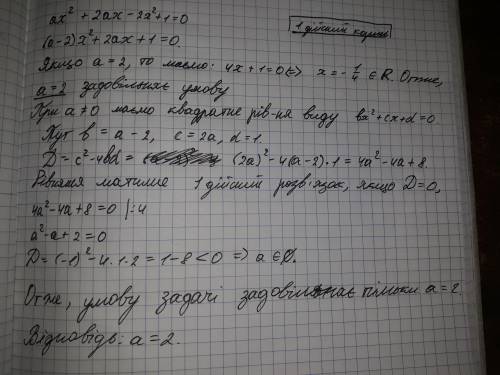 ax² + 2ax - 2x² + 1 = 0
1 дійсний корінь
(a-2)x² + 2ax + 1 = 0.
Якщо a = 2, то маємо: 4x + 1 = 0 ⇔ x = -1/4 ∈ R. Отже,
a = 2 задовільняє умову
При a ≠ 0 маємо квадратне рів-ня виду bx² + cx + d = 0
Тут b = a - 2, c = 2a, d = 1.
D = c² - 4bd = (2a)² - 4(a-2)·1 = 4a² - 4a + 8.
Рівняння матиме 1 дійсний розв'язок, якщо D = 0,
4a² - 4a + 8 = 0 |:4
a² - a + 2 = 0
D = (-1)² - 4·1·2 = 1 - 8 < 0 ⇒ a ∈ ∅.
Отже, умову задачі задовільняє тільки a = 2
Відповідь: a = 2.